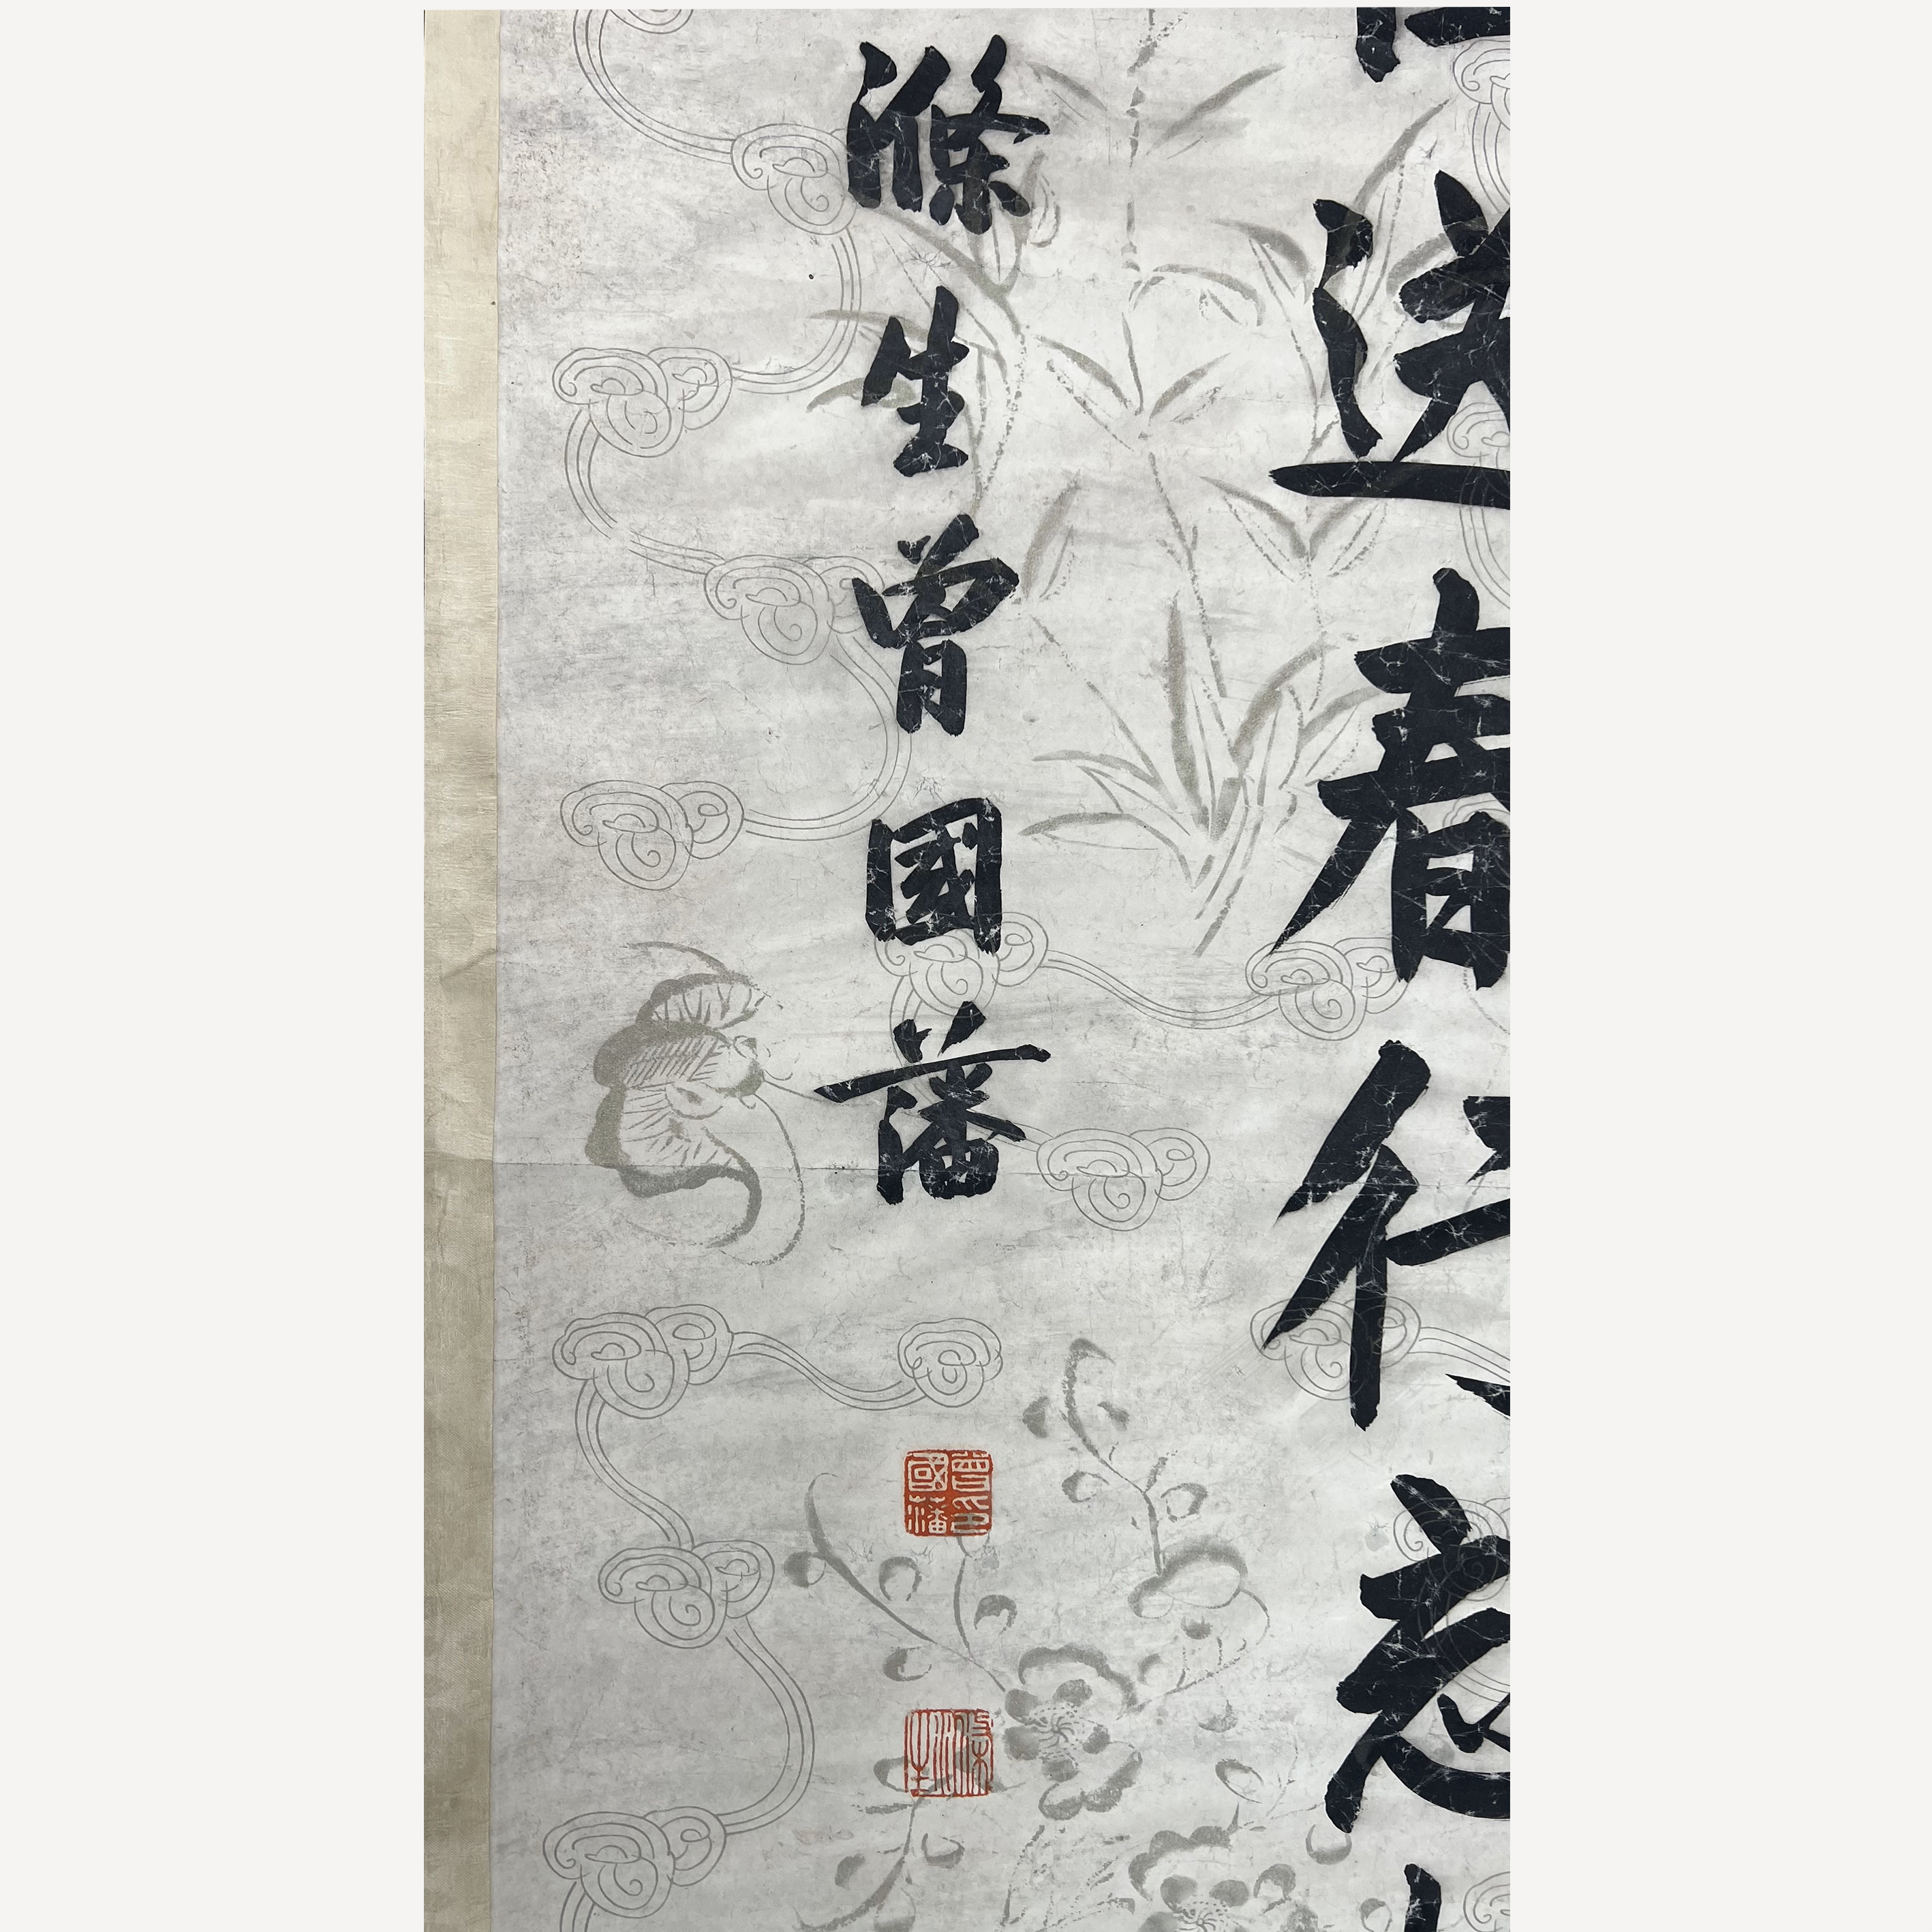 送春
滌生曾國藩
曾印國藩
滌生